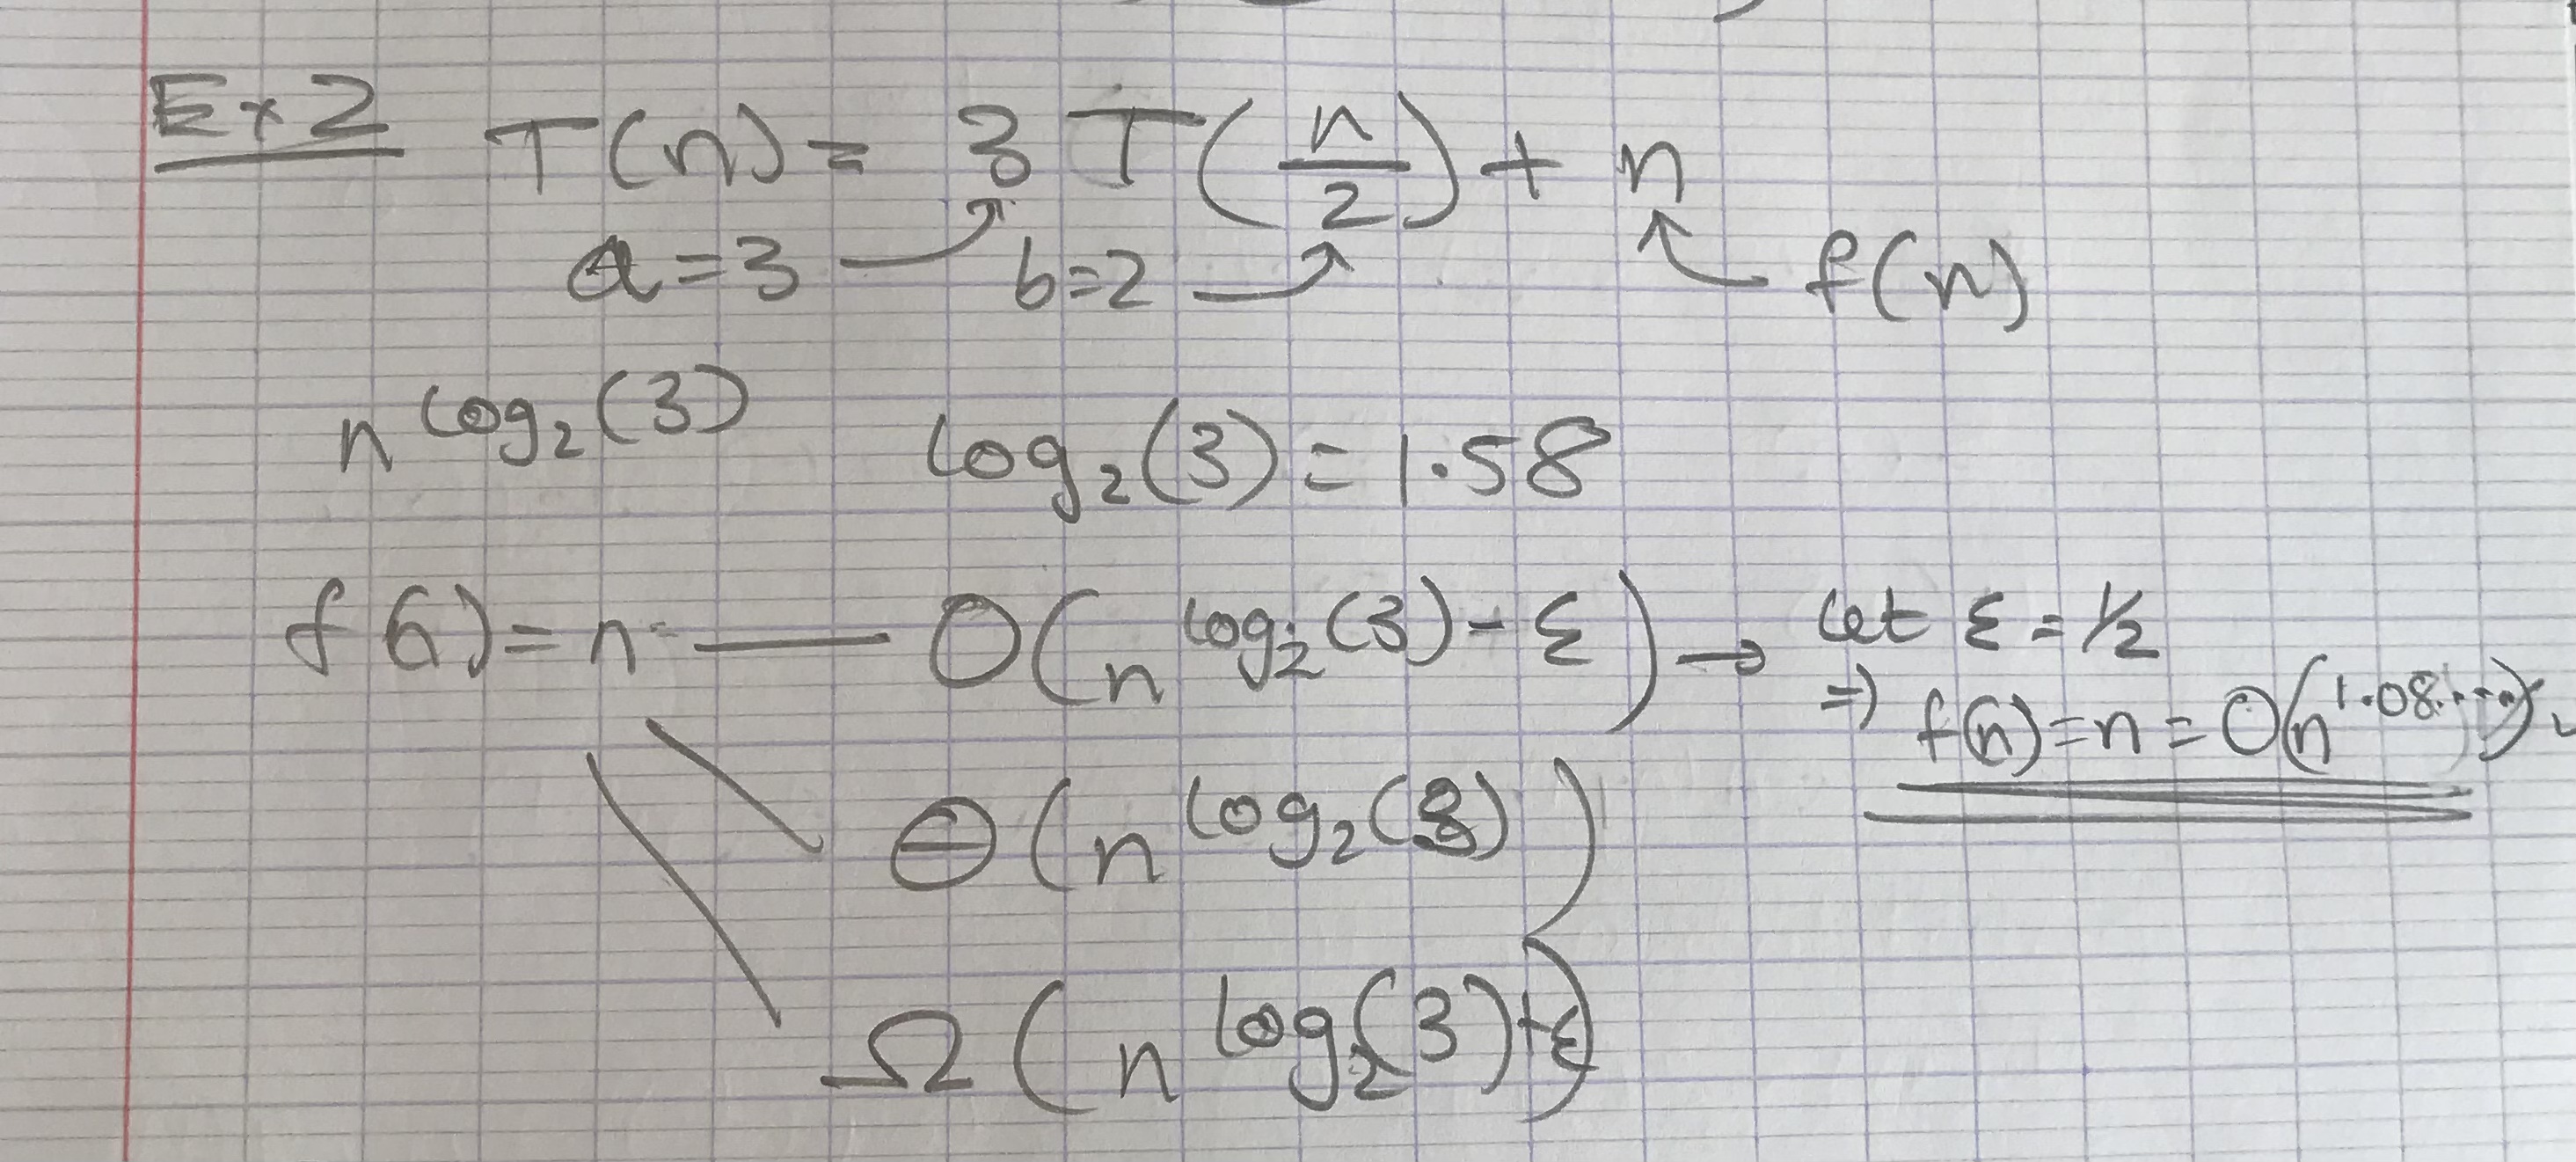 Ex 2 T(n) = 3 T(n/2) + n
a = 3 b = 2 f(n)
n^log₂(3) log₂(3) = 1.58
f(n) = n — O(n^log₂(3) - ε) → let ε = 1/2
⇒ f(n) = n = O(n^1.08...)
Θ(n^log₂(3))
Ω(n^log₂(3) + ε)